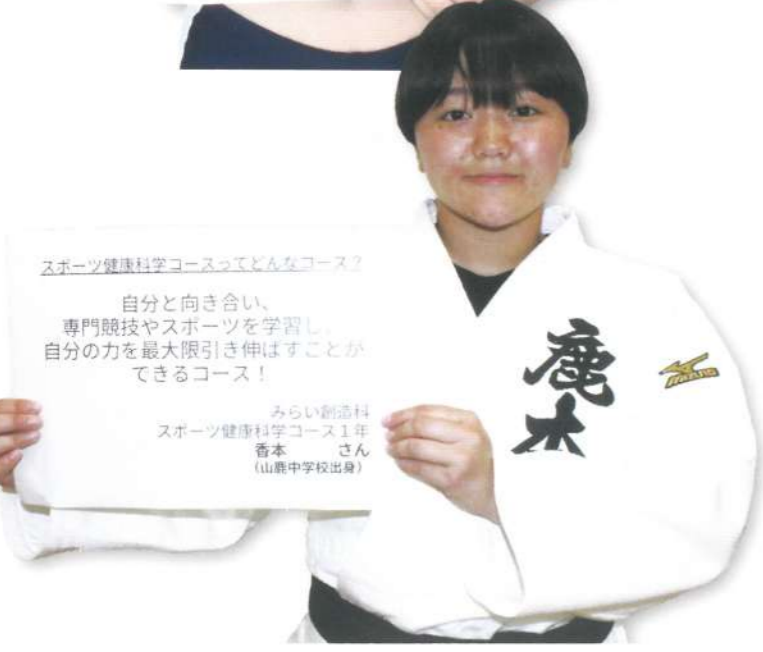 スポーツ健康科学コースってどんなコース？
自分と向き合い、
専門競技やスポーツを学習し、
自分の力を最大限引き伸ばすことが
できるコース！
みらい創造科
スポーツ健康科学コース１年
香本　　　さん
（山鹿中学校出身）
鹿本
MIZUNO